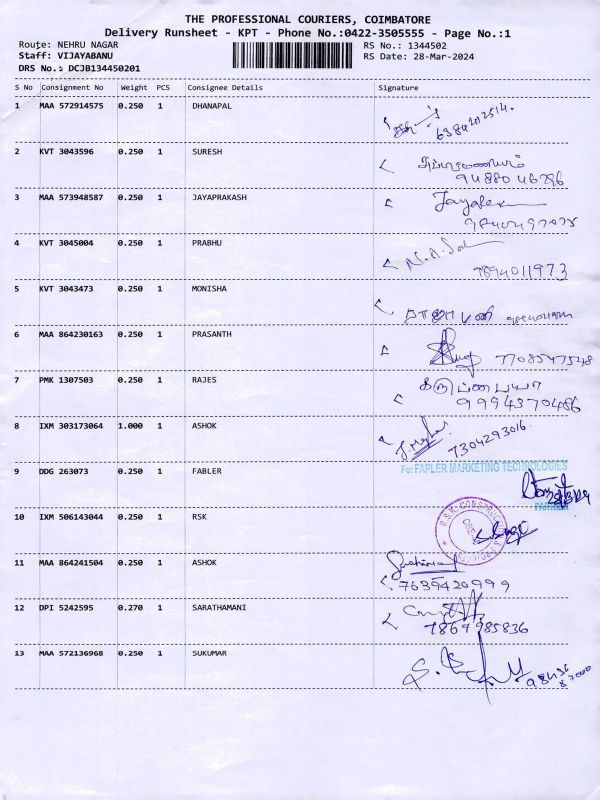 THE PROFESSIONAL COURIERS, COIMBATORE
Delivery Runsheet - KPT - Phone No.:0422-3505555 - Page No.:1
Route: NEHRU NAGAR RS No.: 1344502
Staff: VIJAYABANU RS Date: 28-Mar-2024
DRS No.: DCJB134450201
S No Consignment No Weight PCS Consignee Details Signature
1 MAA 572914575 0.250 1 DHANAPAL
6384212514.
2 KVT 3043596 0.250 1 SURESH
3 MAA 573948587 0.250 1 JAYAPRAKASH
4 KVT 3045004 0.250 1 PRABHU
7894011973
5 KVT 3043473 0.250 1 MONISHA
6 MAA 864230163 0.250 1 PRASANTH
7708547548
7 PMK 1307503 0.250 1 RAJES
9994370486
8 IXM 303173064 1.000 1 ASHOK
7304293016.
For FAPLER MARKETING TECHNOLOGIES
9 DDG 263073 0.250 1 FABLER
10 IXM 506143044 0.250 1 RSK
11 MAA 864241504 0.250 1 ASHOK
7639420999
12 DPI 5242595 0.270 1 SARATHAMANI
7867985836
13 MAA 572136968 0.250 1 SUKUMAR